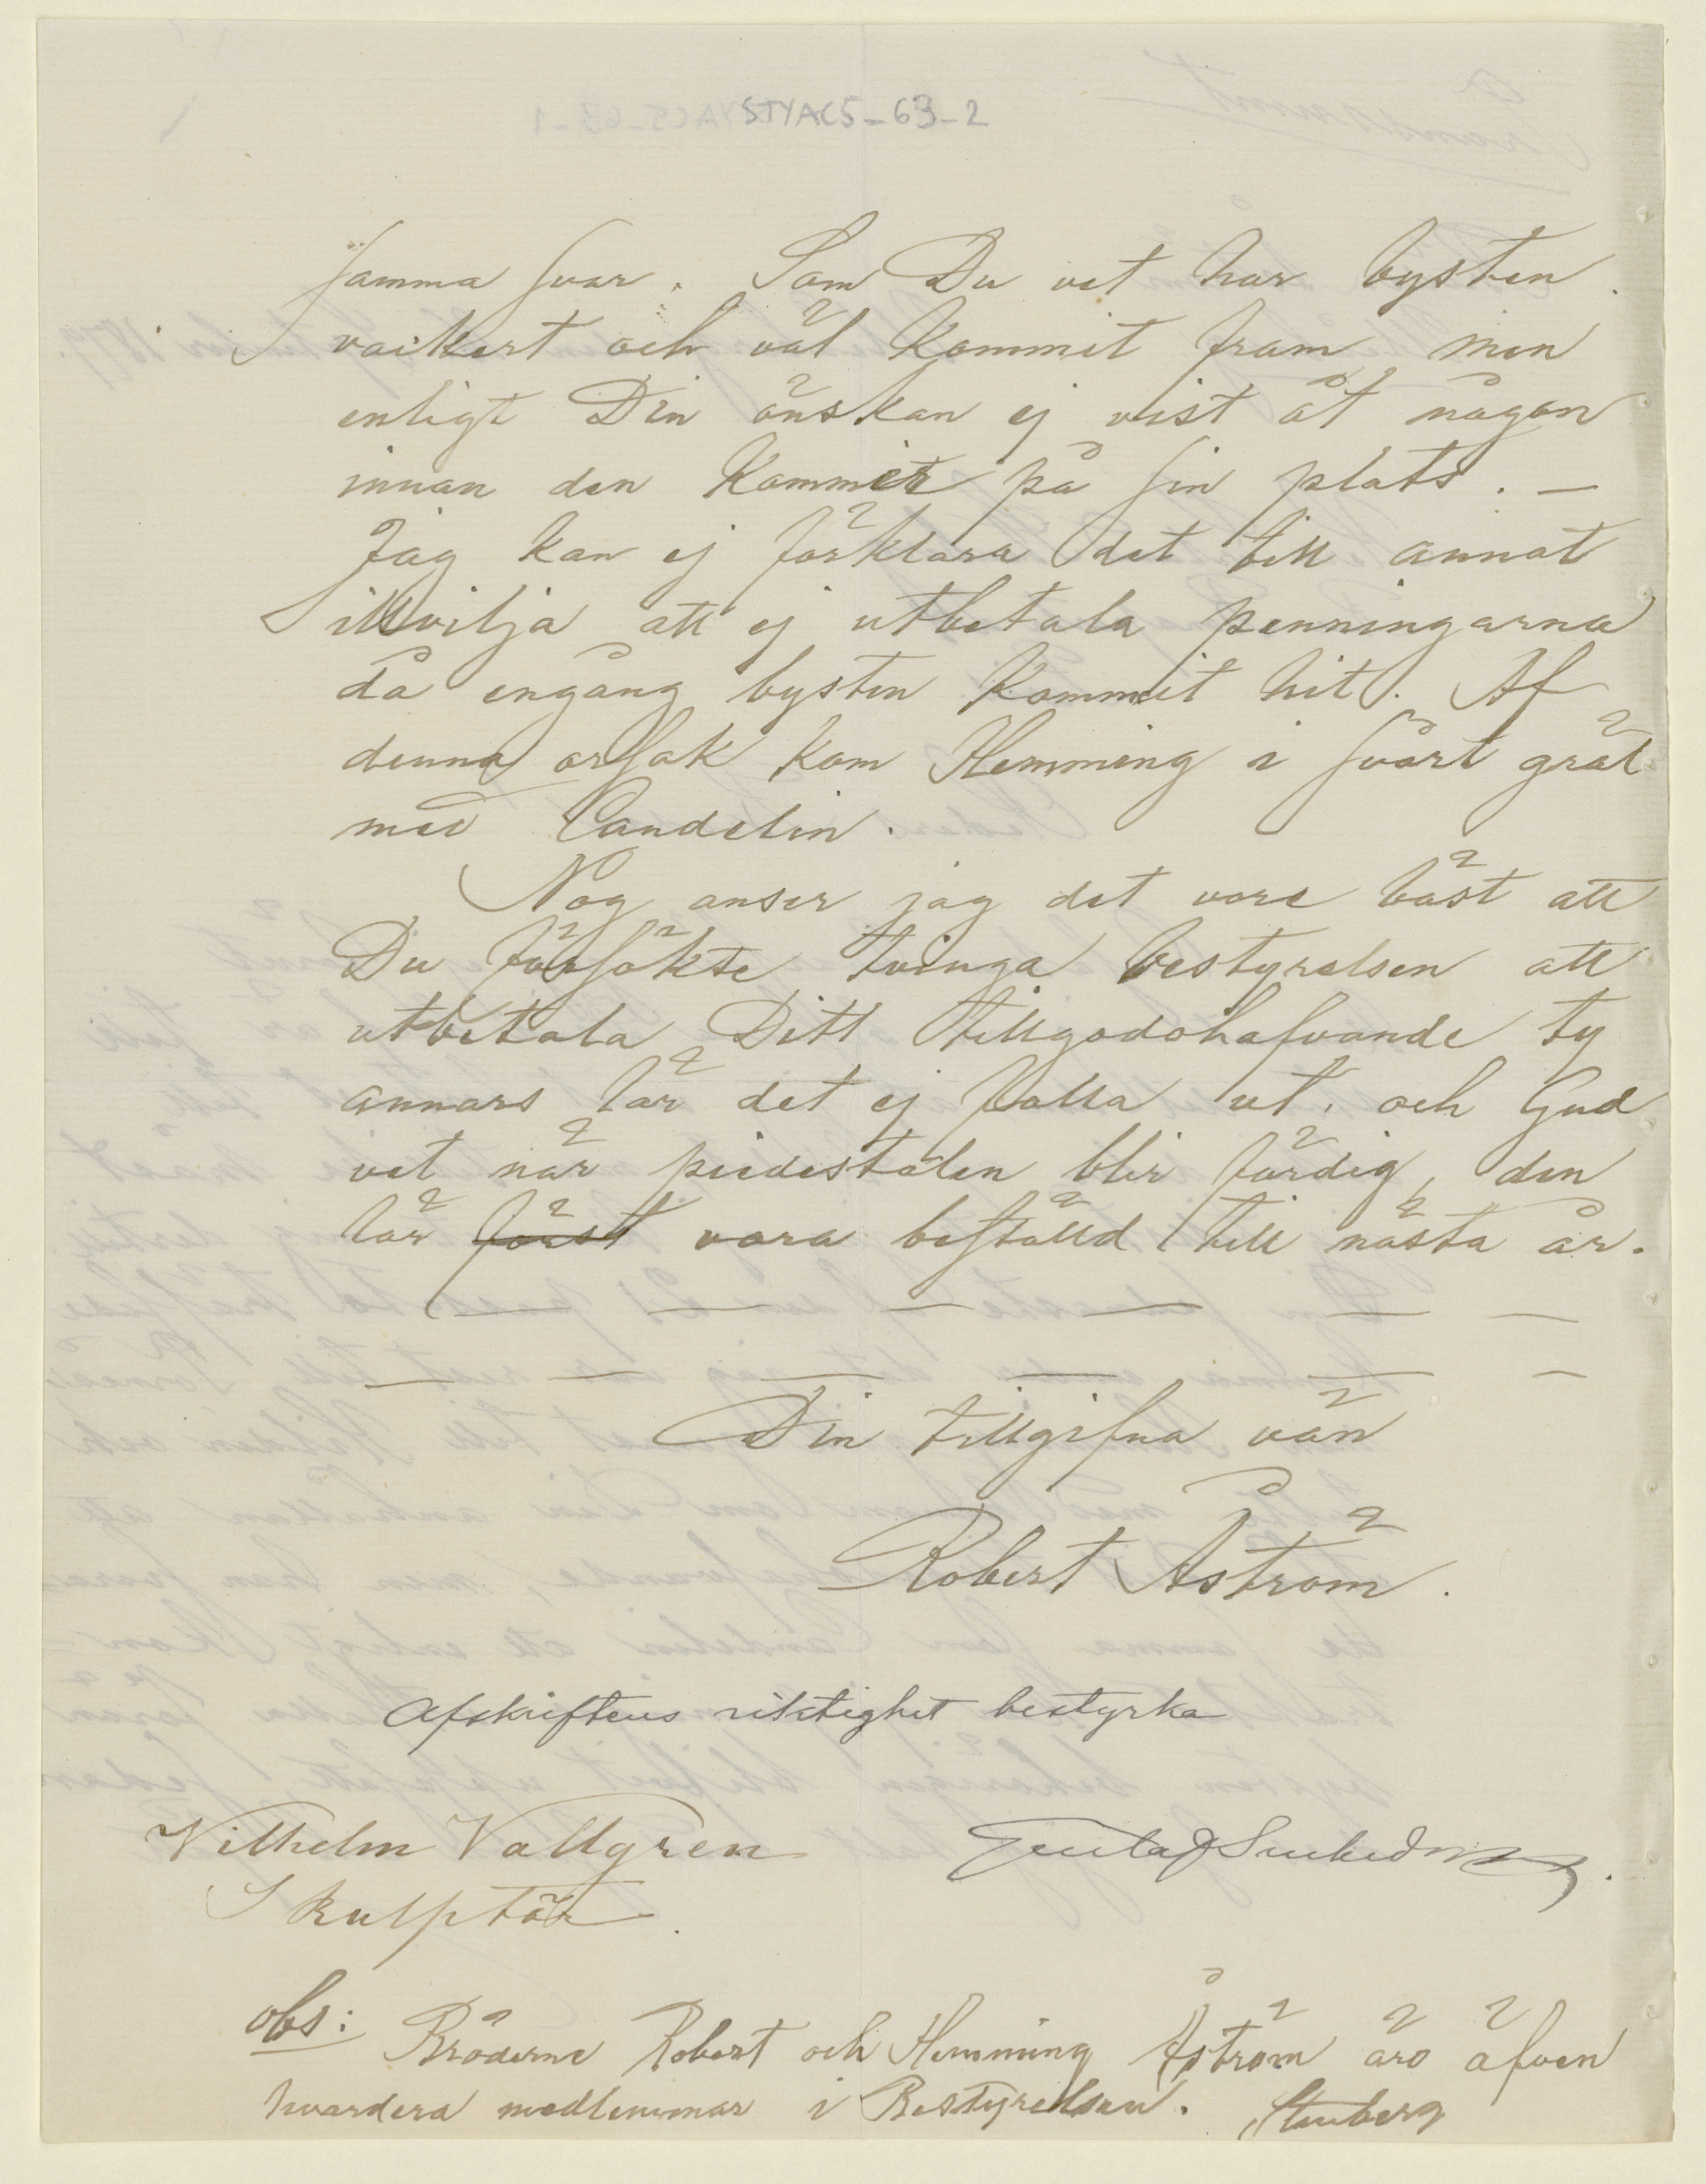 STYAC5-63-2
samma svar. Som Du vet har bysten
vackert och väl kommit fram men
enligt Din önskan ej vist åt någon
innan den kommer på sin plats. —
Jag kan ej förklara det till annat
illvilja att ej utbetala penningarna
då engång bysten kommit hit. Af
denna orsak kom Hemming i svårt gräl
med Candelin.
Nog anser jag det vore bäst att
Du försökte tvinga bestyrelsen att
utbetala Ditt tillgodohafvande ty
annars lär det ej falla ut, och Gud
vet när piedestalen blir färdig, den
lär först vara beställd till nästa år.
— — — — — —
— — — — — —
Din tillgifna vän
Robert Åström.
Afskriftens riktighet bestyrka
Vilhelm Vallgren
Gustaf
Skulptör.
obs: Bröderne Robert och Hemming Åström äro äfven
hvardera medlemmar i Bestyrelsen. Stenberg